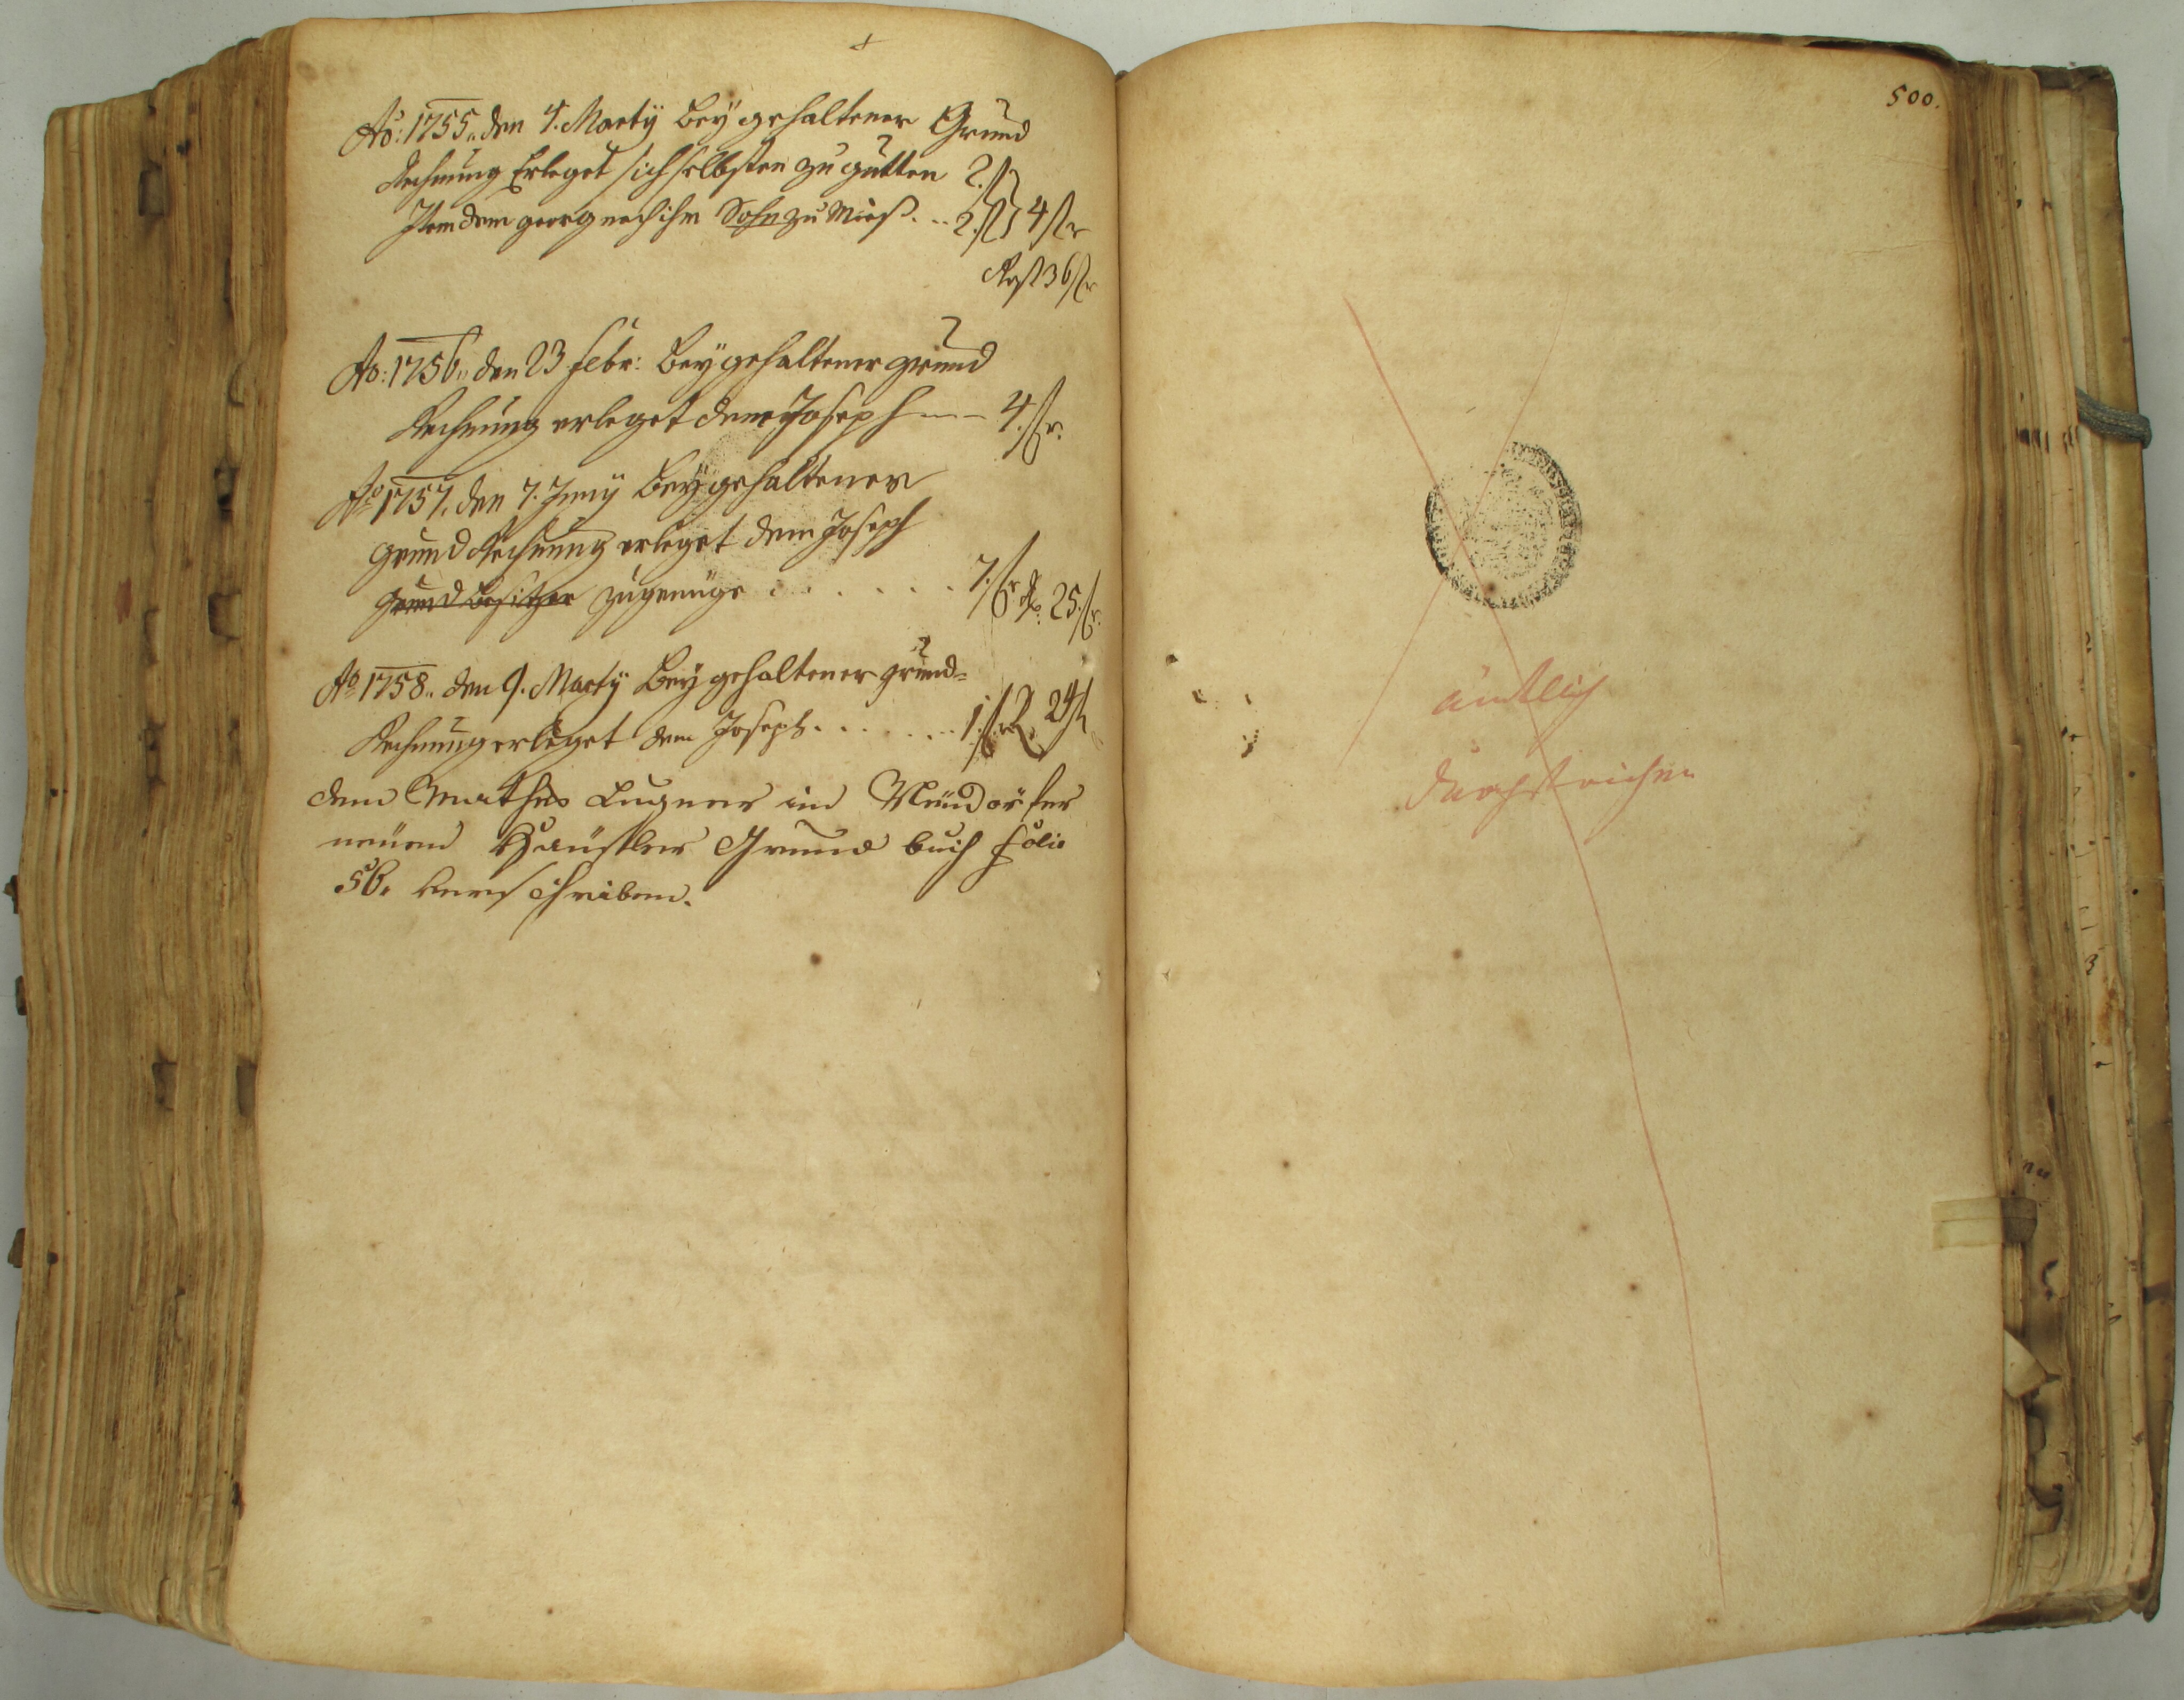 Ao: 1755. den 4. Marty beÿ gehaltener Grund
Rechnung Erleget sich selbsten zu gutten 2. f
Item dem georg nach ihm Sohn zu 2. f } 4 fr
Rest 36 fr
Ao: 1756. den 23 febr: beÿ gehaltener grund
Rechnung erleget dem Joseph --- 4. fr.
Ao 1757. den 7. Juny beÿ gehaltener
grund Rechnung erleget dem Joseph
grund besitzer zu genüge . . . . . . 7. fr R. 25. fr.
Ao 1758. den 9. Marty beÿ gehaltener grund=
Rechnung erleget dem Joseph . . . . . . 1. fr R 24 f
dem Mathes Lugner im Neudörfer
neuen Häußler Grund buch folio
56. verschrieben.
500.
ämtlich
durchstrichen